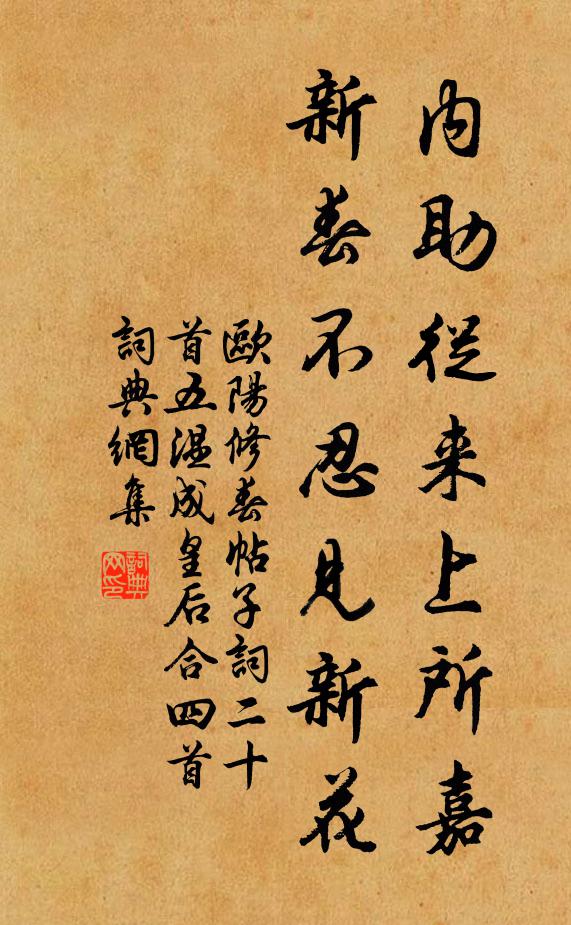 内助從来上所嘉
新春不忍見新花
歐陽修春帖子詞二十
首五溫成皇后合四首
詞典網集
詞典网印